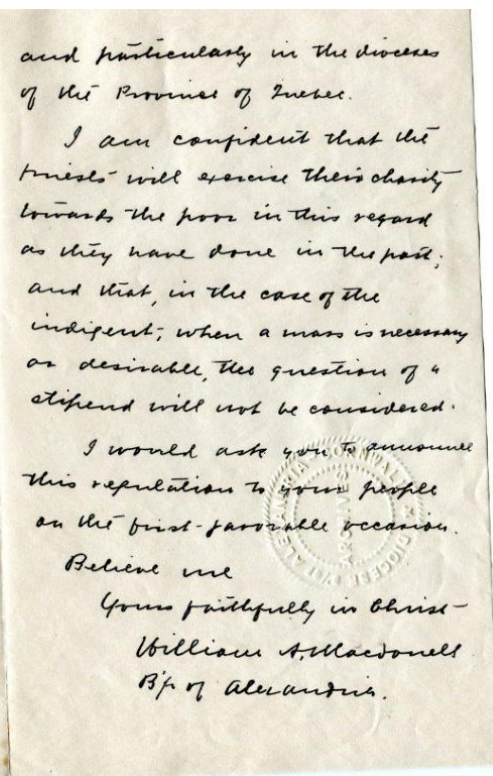 and particularly in the dioceses
of the Province of Quebec.
I am confident that the
priests will exercise their charity
towards the poor in this regard
as they have done in the past;
and that, in the case of the
indigent, when a mass is necessary
or desirable, the question of a
stipend will not be considered.
I would ask you to announce
this regulation to your people
on the first favorable occasion.
Believe me
Yours faithfully in Christ
William A. Macdonell
Bp of Alexandria.
DIOCESE ALEXANDRIA CORNWALL
ARCHIVES